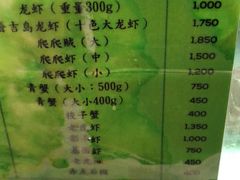 龙虾（重量300g） 1,000
普吉岛龙虾（十色大龙虾） 1,750
爬爬贼（大） 1,850
爬爬虾（中） 1,500
爬爬虾（小） 1,200
青蟹（大小：500g） 750
青蟹（大小400g） 450
梭子蟹 400
老虎虾 1,350
虾 1,000
虾 750
450
400